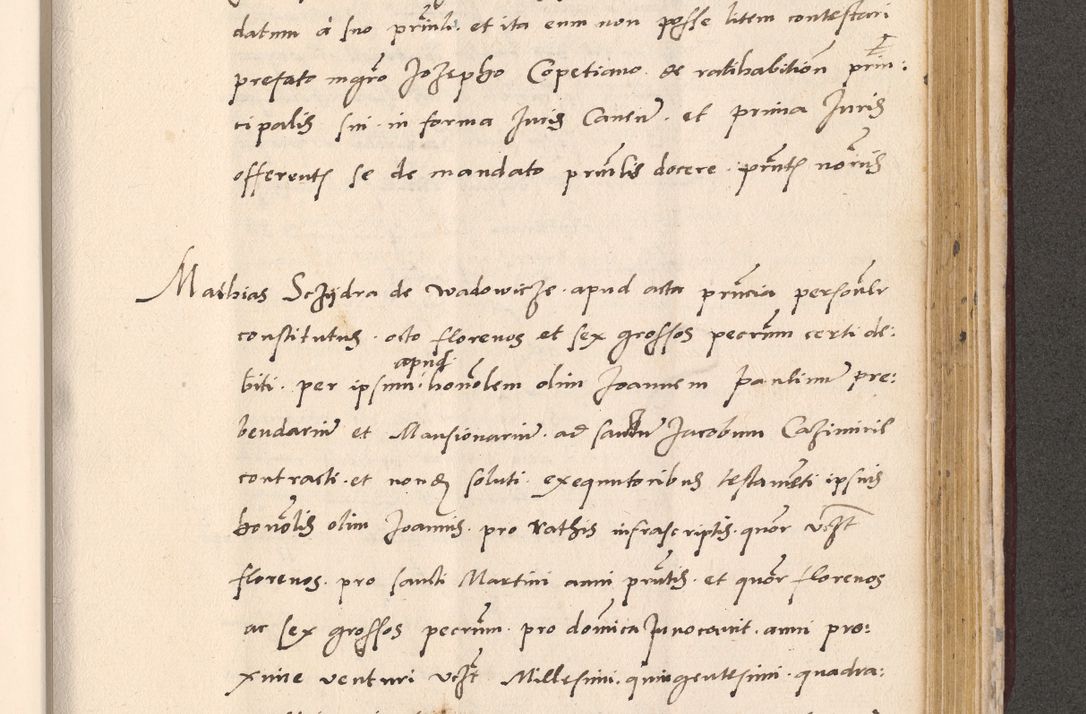 datum à suo prinli. et ita eum non posse litem contestari
prefato mgro Jozepho Copetiano. de ratihabition prin:
cipalis sui. in forma Juris Caven. et prima Juris
offerents se de mandato prinlis docere. prnts noriis
Mathias Sczydra de Wadowicze. apud acta prncia personlr
constitutus. octo florenos et sex grossos pecrum certi de:
biti. per ipsum apud honolem olim Joannem Paulinu pre:
bendariu et Mansionariu. ad sanctu Jacobum Cazimiris
contracti. et nondu soluti. exequutoribus testamenti ipsius
honolis olim Joannis. pro rathis infrascriptis. quor vczt
florenos. pro sancti Martini anni prntis. et quor florenos
ac sex grossos pecrum. pro domica Invocavit. anni pro:
xime venturi vczt Millesimi. quingentesimi. quadra: